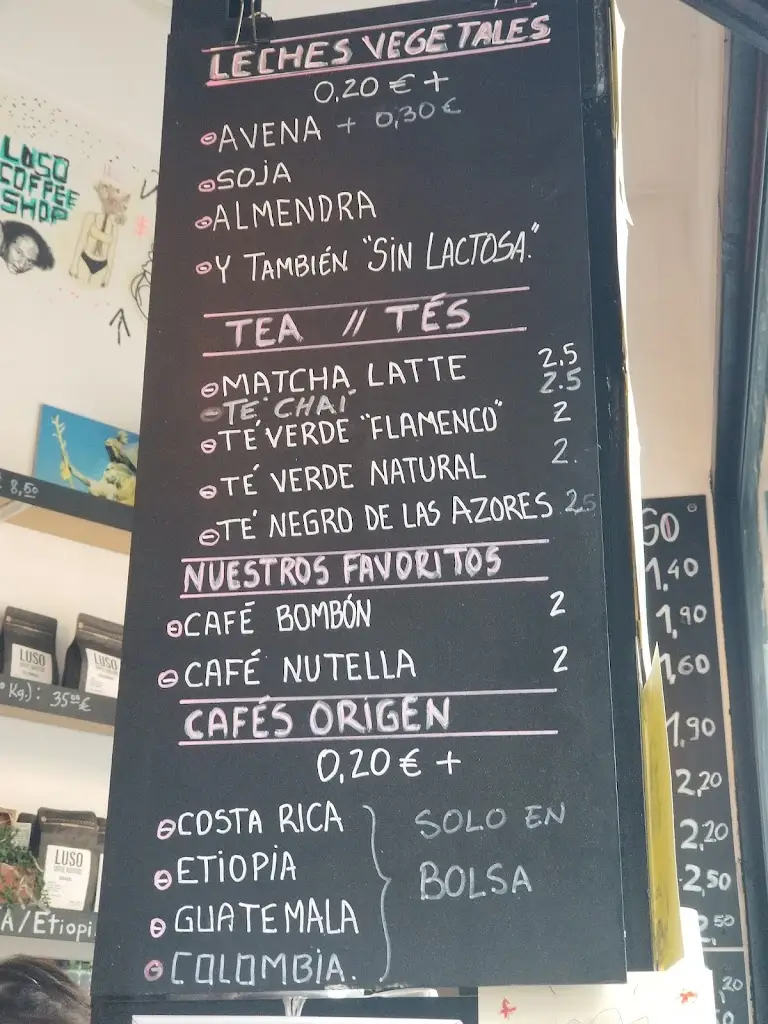 LECHES VEGETALES
0,20 € +
AVENA + 0,30 €
SOJA
ALMENDRA
Y TAMBIÉN "SIN LACTOSA."
TEA // TÉS
MATCHA LATTE 2.5
TÉ CHAI 2.5
TÉ VERDE "FLAMENCO" 2
TÉ VERDE NATURAL 2.
TÉ NEGRO DE LAS AZORES 25
NUESTROS FAVORITOS
CAFÉ BOMBÓN 2
CAFÉ NUTELLA 2
CAFÉS ORIGEN
0,20 € +
COSTA RICA
ETIOPIA
GUATEMALA
COLOMBIA.
SOLO EN
BOLSA
LUSO
COFFEE
SHOP
8,50
LUSO
LUSO
Kg.): 35⁰⁰€
LUSO
A/Etiopi
GO
1,40
1,90
1,60
1,90
2,20
2,20
2,50
2,50
20